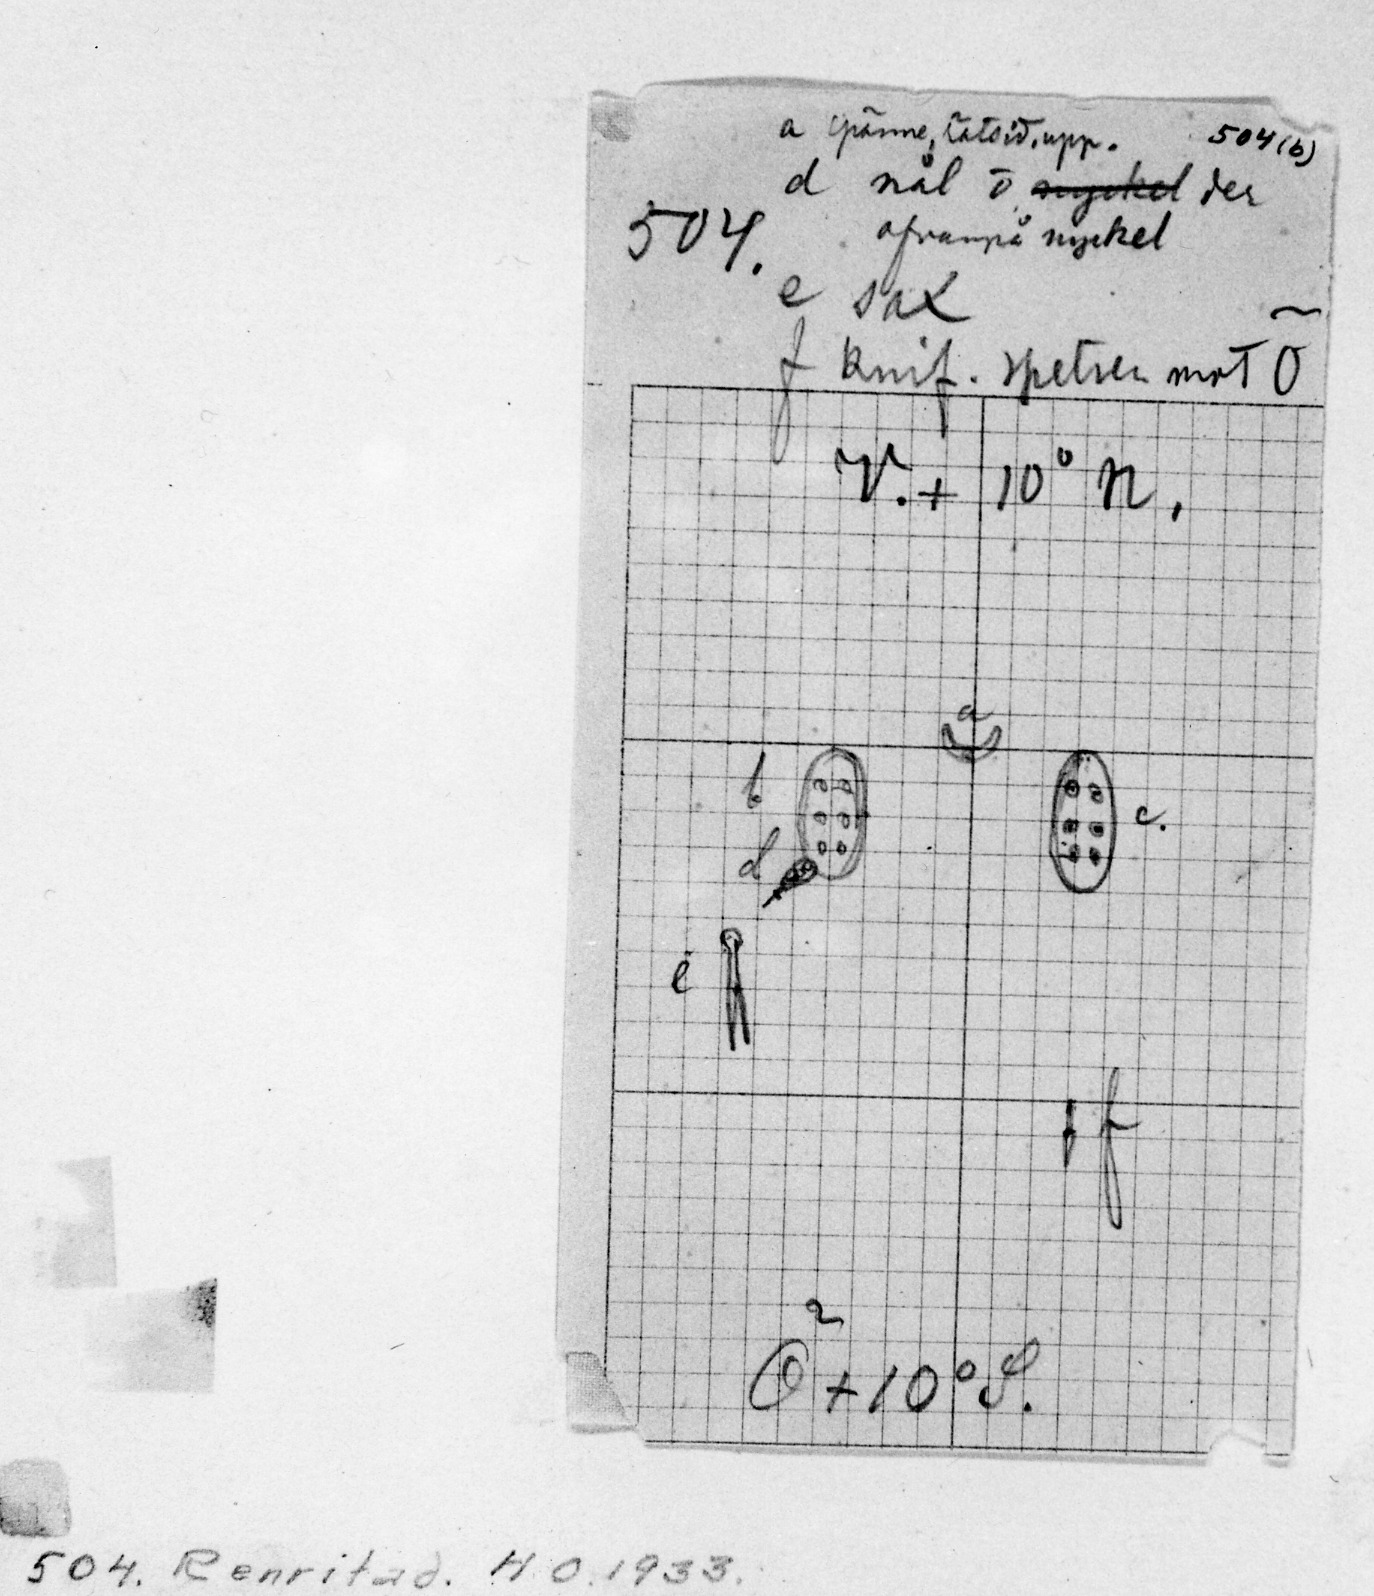 504(b)
a spänne, låtsid. upp.
d nål o. nyckel der
504.
ofvanpå nyckel
e sax
f knif. spetsen mot Ö
V. + 10° N.
a
b
c.
d
e
f
Ö + 10° S.
504. Renritad. H O. 1933.